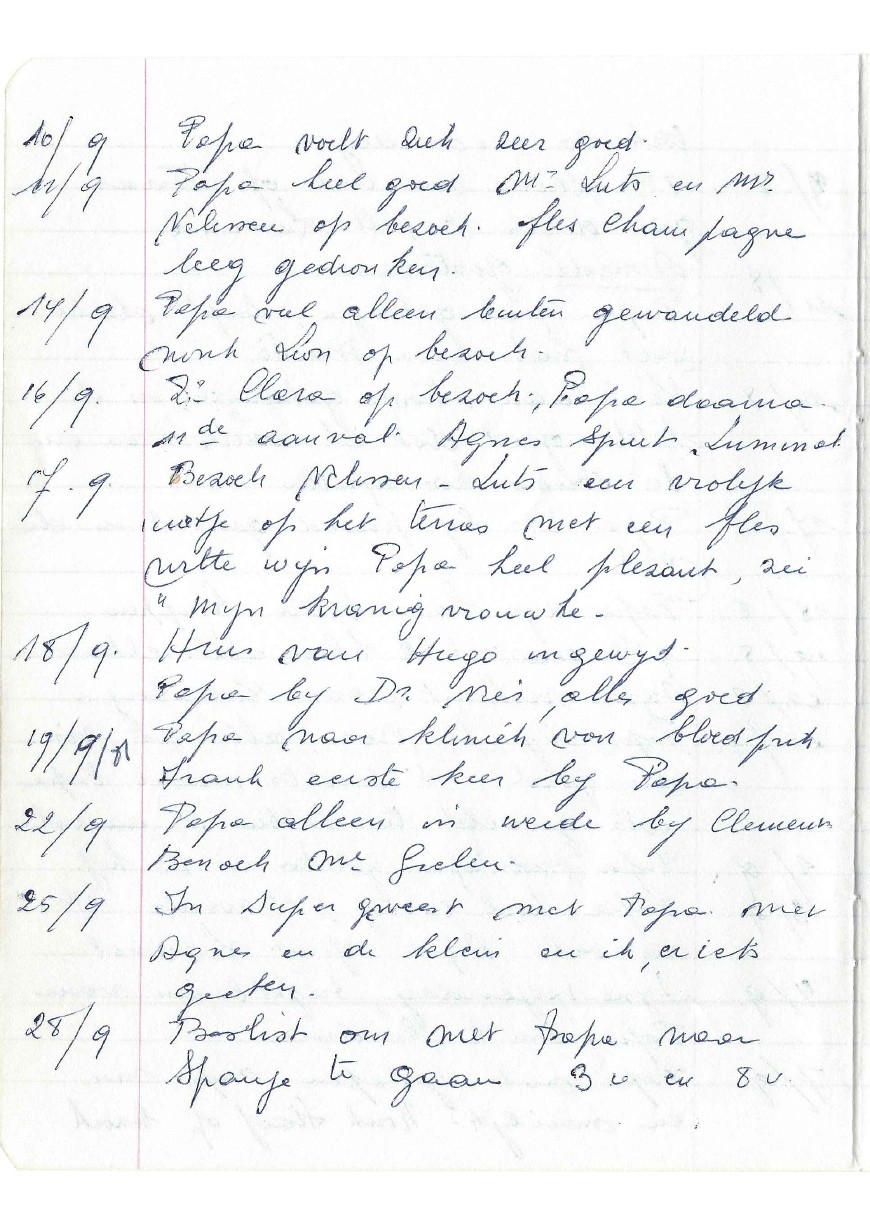 10/9 Papa voelt zich zeer goed.
11/9 Papa heel goed Mr Luts en Mr.
Nelissen op bezoek. fles Champagne
leeg gedronken.
14/9 Papa veel alleen buiten gewandeld
nonk Leon op bezoek.
16/9. Zr Clara op bezoek., Papa daarna
11de aanval. Agnes spuit Luminal
17.9. Bezoek Nelissen - Luts een vrolijk
uurtje op het terras met een fles
witte wijn Papa heel plezant, zei
" mijn kranig vrouwke -
18/9. Huis van Hugo ingewijd.
Papa by Dr. Nies, alles goed
19/9/81 Papa naar kliniek voor bloedprik
Frank eerste keer by Papa.
22/9 Papa alleen in weide by Clemens
Bezoek Mr Gielen.
25/9 In Super geweest met Papa. met
Agnes en de klein en ik, er iets
geeten.
28/9 Beslist om met Papa naar
Spanje te gaan 3 v en 8 v.